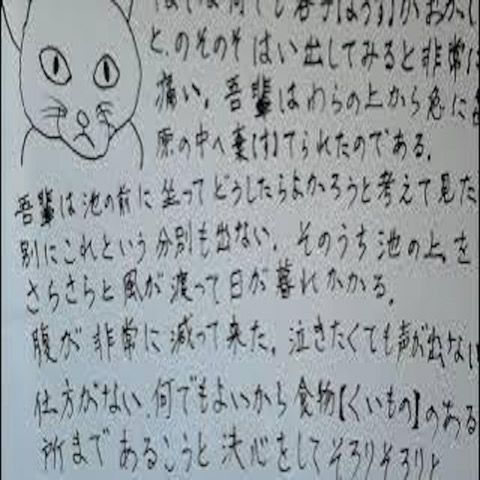 はてな何でも容子【ようす】がおかし
と、のそのそはい出してみると非常に
痛い。吾輩はわらの上から急に
原の中へ棄【す】てられたのである。
吾輩は池の前に坐ってどうしたらよかろうと考えて見た
別にこれという分別も出ない。そのうち池の上を
さらさらと風が渡って日が暮れかかる。
腹が非常に減って来た。泣きたくても声が出ない
仕方がない、何でもよいから食物【くいもの】のある
所まであるこうと決心をしてそろりそろりと